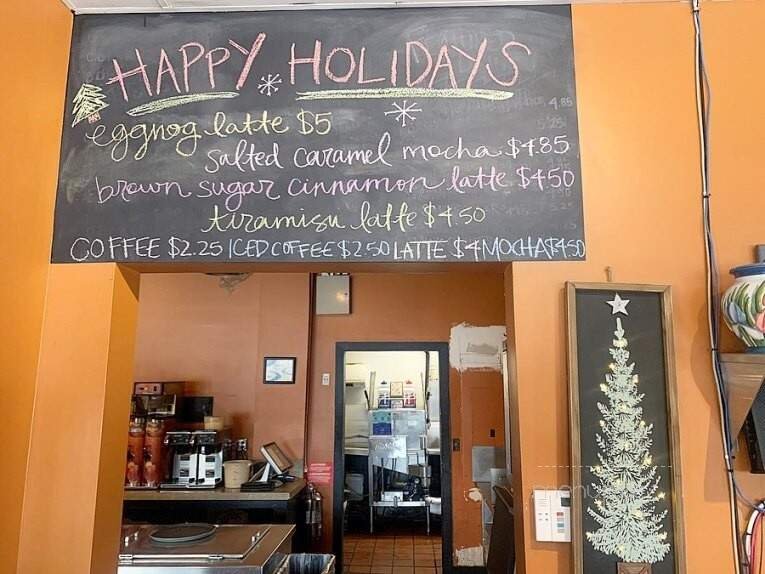 HAPPY HOLIDAYS
eggnog latte $5
salted caramel mocha $4.85
brown sugar cinnamon latte $4.50
tiramisu latte $4.50
COFFEE $2.25 ICED COFFEE $2.50 LATTE $4 MOCHA $4.50